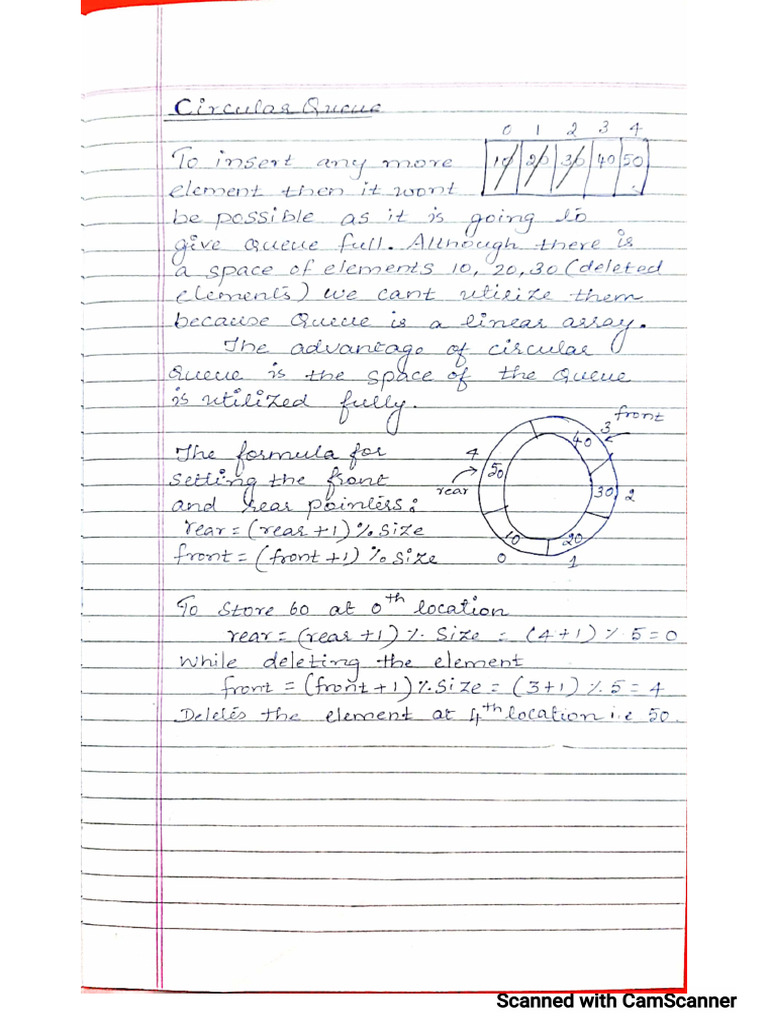 Circular Queue
0 1 2 3 4
10 20 30 40 50
To insert any more
element then it wont
be possible as it is going to
give Queue full. Although there is
a space of elements 10, 20, 30 (deleted
elements) we cant utilize them
because Queue is a linear array.
The advantage of circular
Queue is the space of the Queue
is utilized fully.
front
3
40
4
50
rear
30
2
10
20
0
1
The formula for
setting the front
and rear pointers:
rear = (rear +1) % Size
front = (front +1) % Size
To Store 60 at 0th location
rear = (rear +1) % Size = (4+1) % 5 = 0
While deleting the element
front = (front +1) % Size = (3+1) % 5 = 4
Deletes the element at 4th location i.e 50.
Scanned with CamScanner